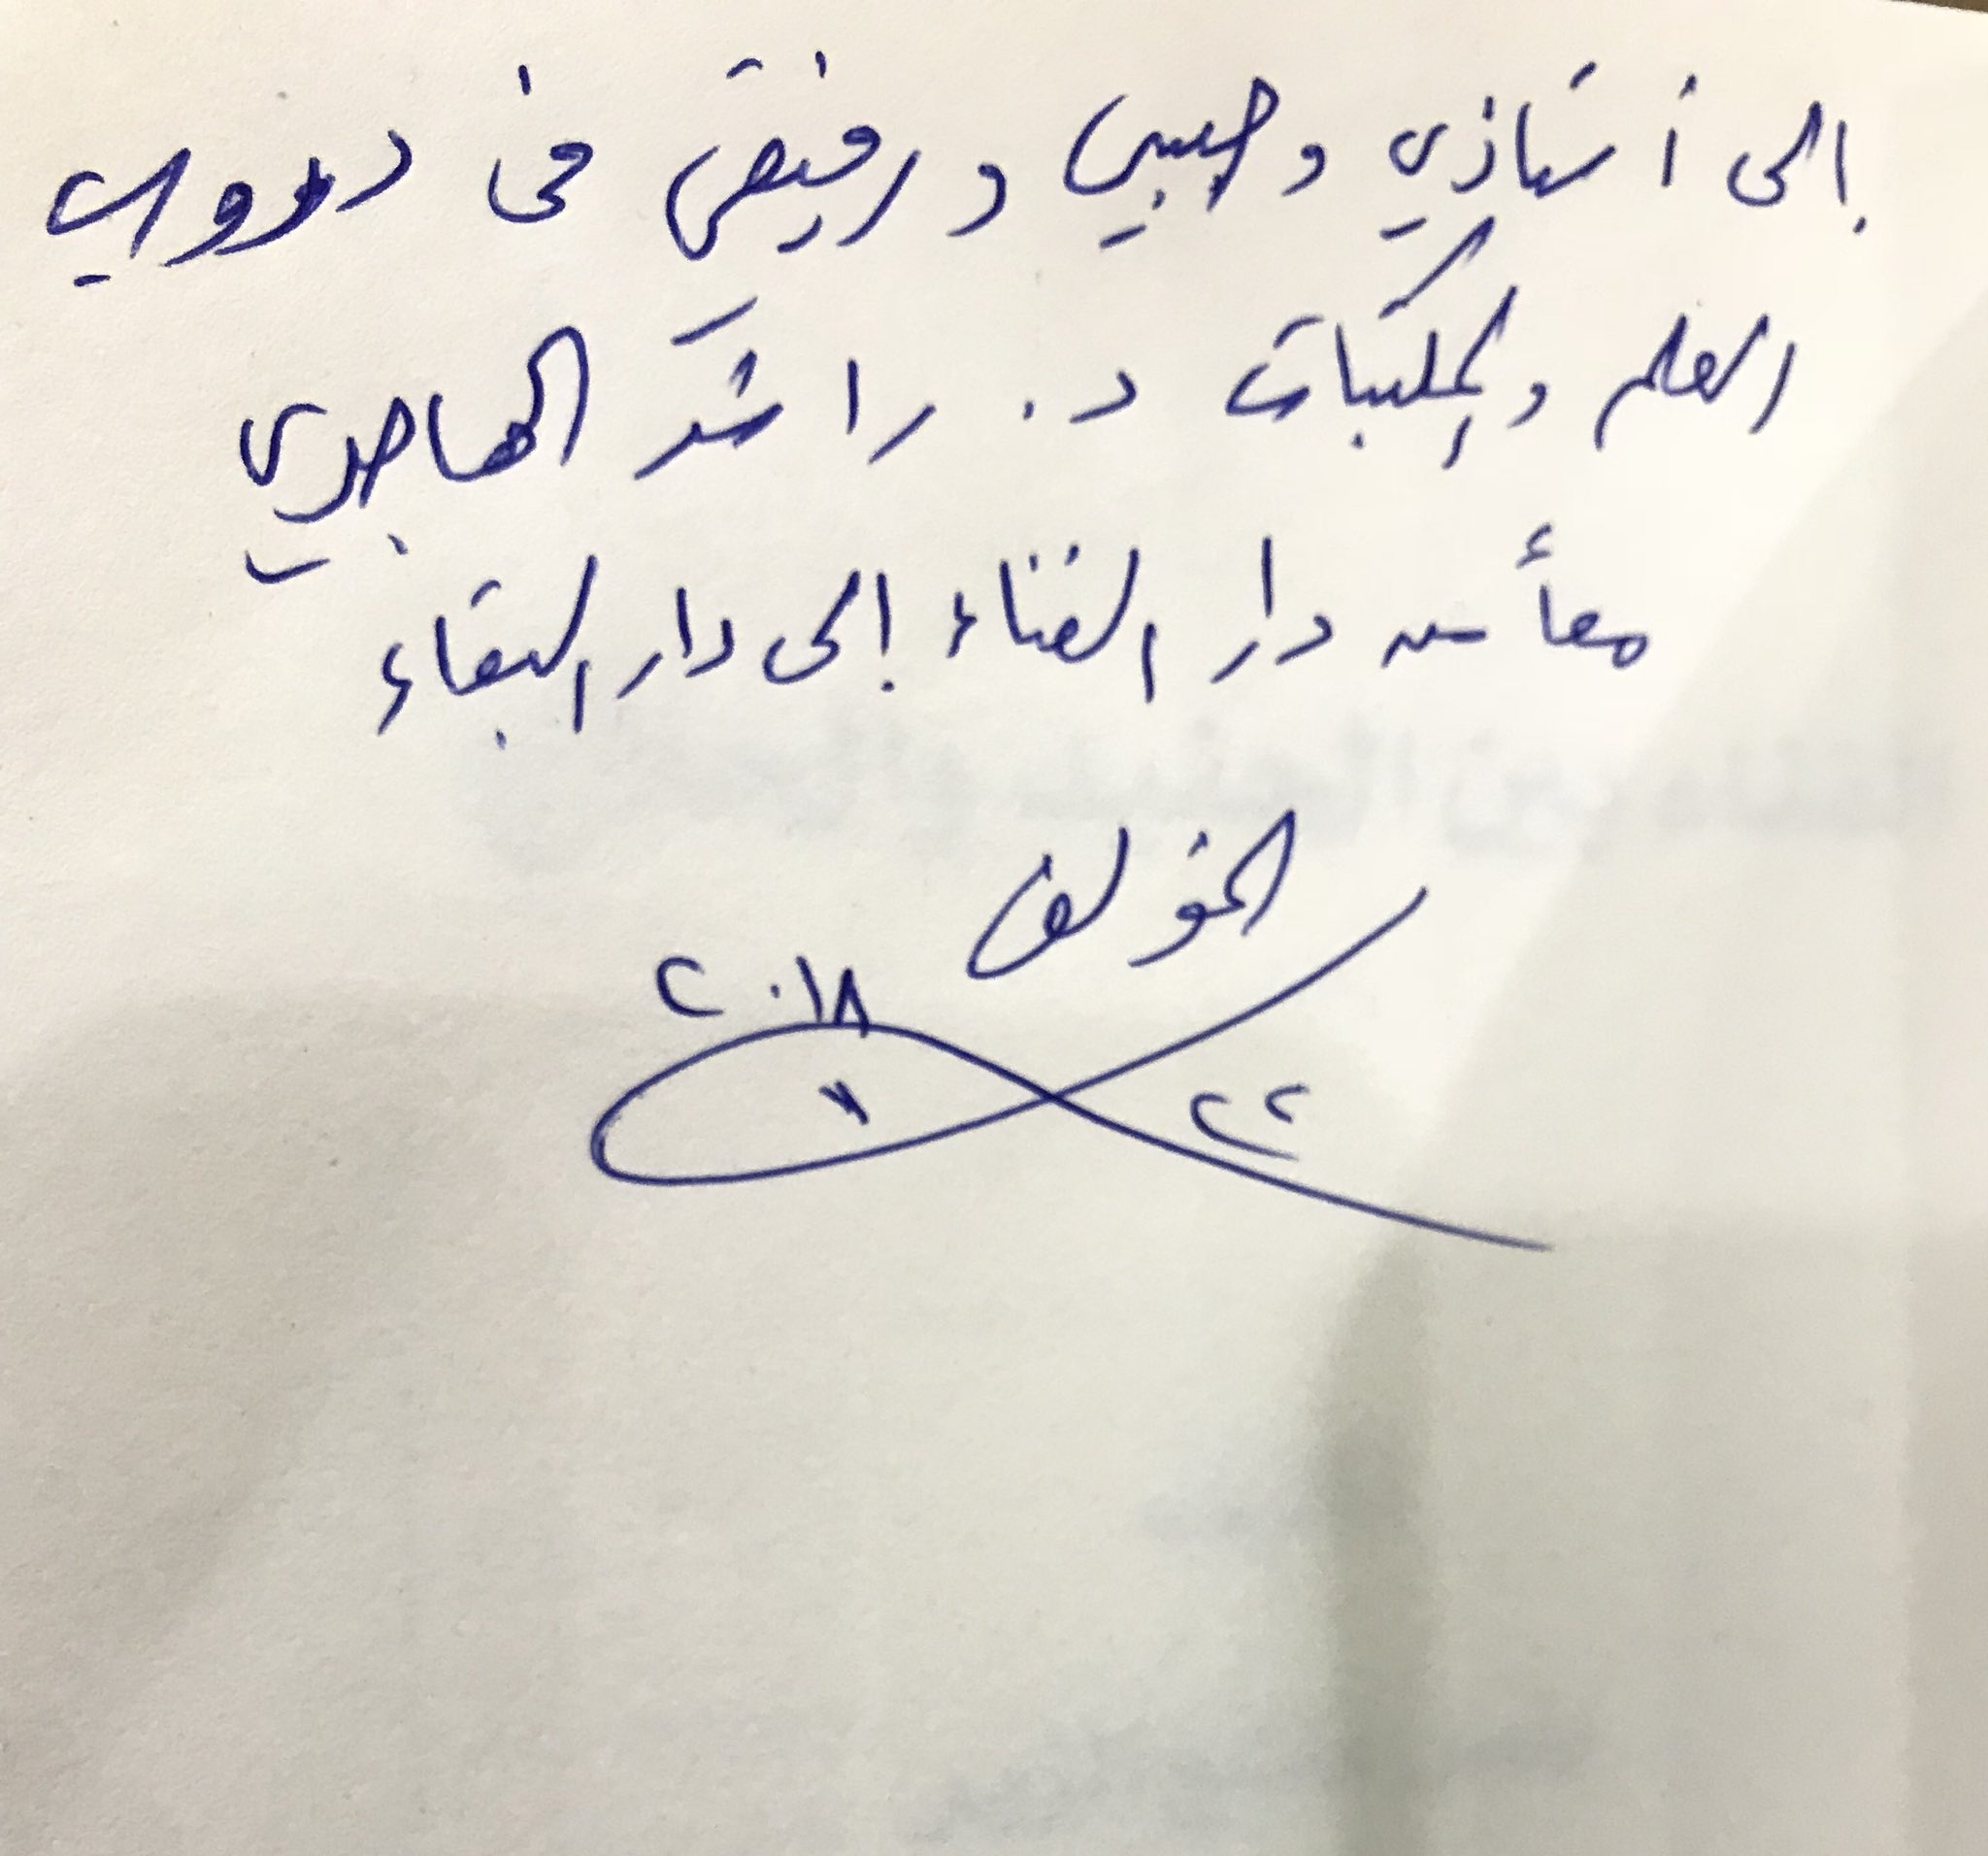 إلى أستاذي وحبيبي ورفيقي في دروب
العلم والمكتبات د. راشد الهاجري
معاً من دار الفناء إلى دار البقاء
المؤلف
٢٠١٨
٢٢